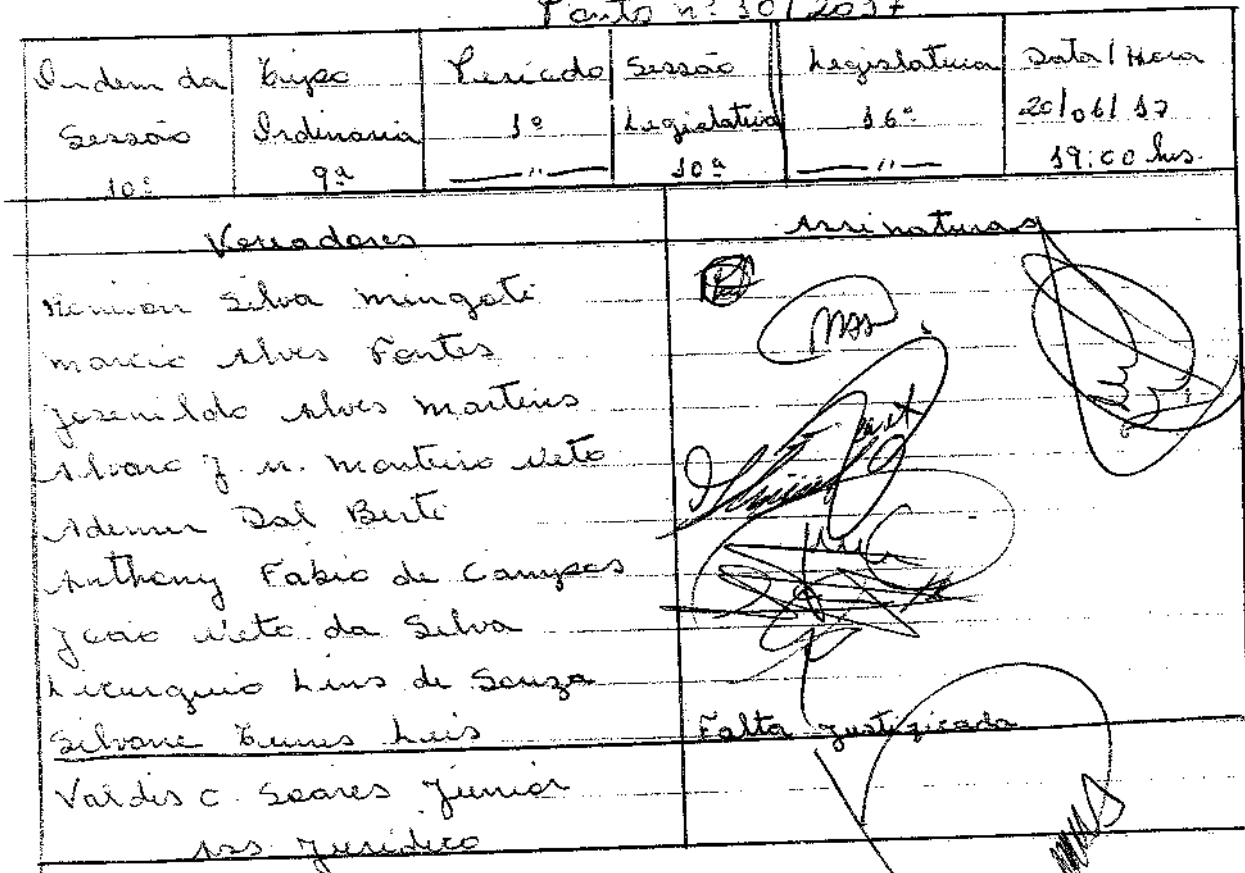 Ponto nº 10/2017
Ordem da Sessão 10ª
Tipo Ordinaria 9ª
Periodo 1º —"—
Sessão Legislativa 10ª
Legislatura 16ª —"—
Data/Hora 20/06/17 19:00 hrs.
Vereadores Assinaturas
Silva Mingoti
Marcio Alves Fontes
Josenildo Alves Martins
Alvaro J. M. Monteiro Neto
Ademir Dal Berti
Anthony Fabio de Campos
João Neto da Silva
Licurguio Lins de Souza
Silvane Nunes Luis Falta Justificada
Valdis C. Soares Júnior
Ass. Jurídico